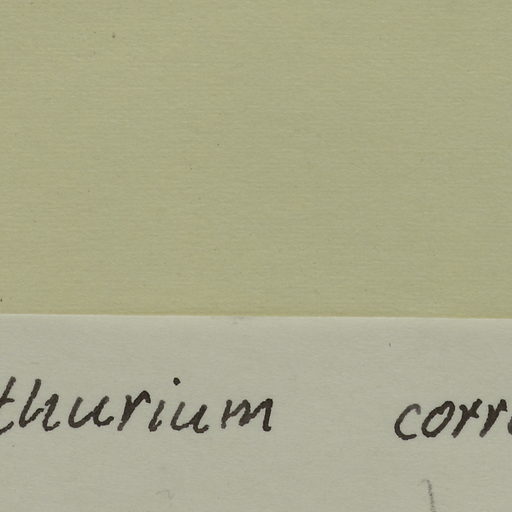 thurium corr